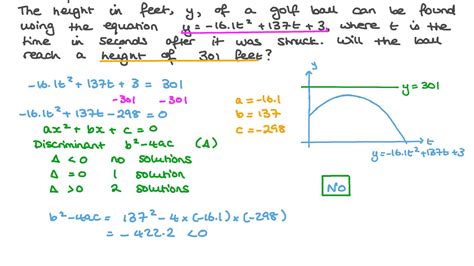 The height in feet, y, of a golf ball can be found
using the equation y = -16.1t² + 137t + 3, where t is the
time in seconds after it was struck. Will the ball
reach a height of 301 feet?
-16.1t² + 137t + 3 = 301
-301 -301
-16.1t² + 137t - 298 = 0
ax² + bx + c = 0
Discriminant b² - 4ac (Δ)
Δ < 0 no solutions
Δ = 0 1 solution
Δ > 0 2 solutions
b² - 4ac = 137² - 4 × (-16.1) × (-298)
= -422.2 < 0
a = -16.1
b = 137
c = -298
y
y = 301
t
y = -16.1t² + 137t + 3
NO